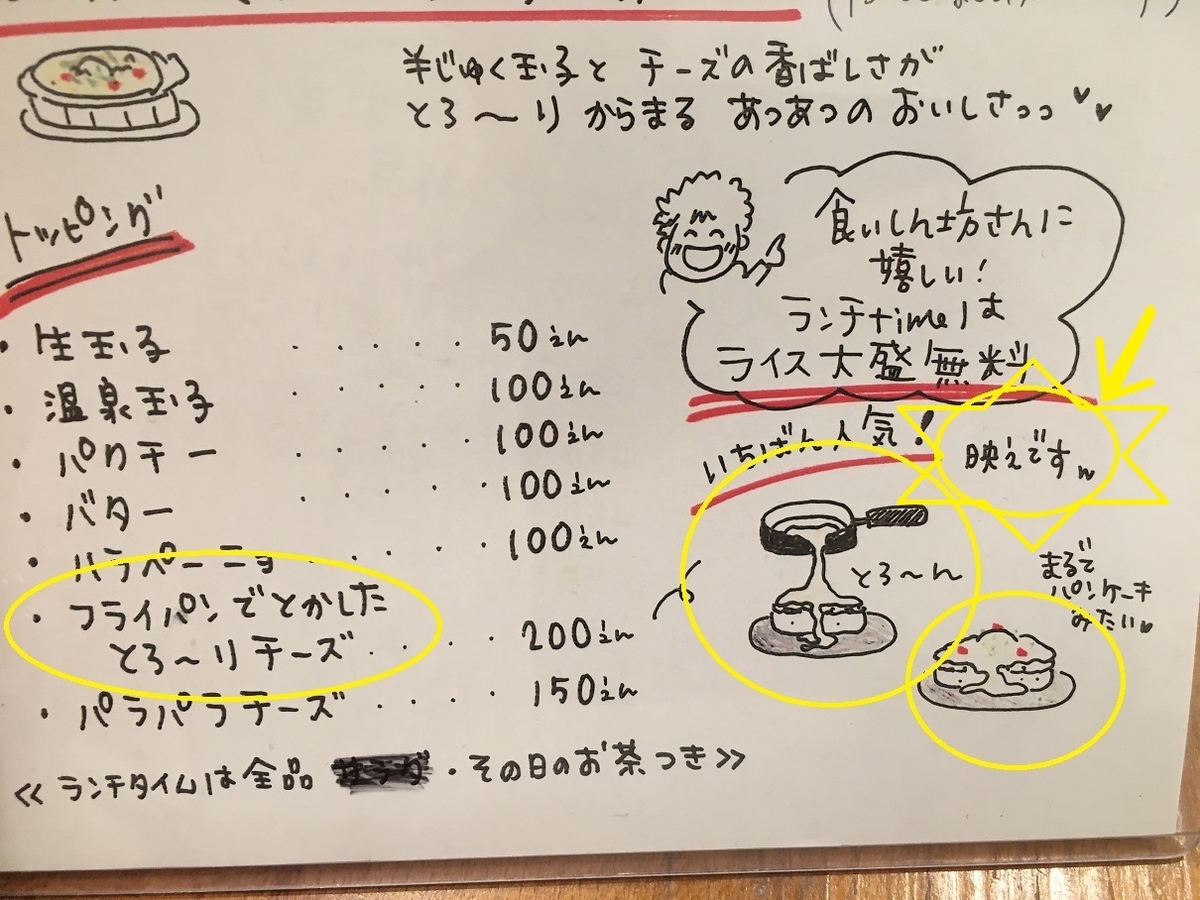 半じゅく玉子と チーズの香ばしさが
とろ〜り からまる あつあつの おいしさっっ
食いしん坊さんに
嬉しい!
ランチtimeは
ライス大盛無料
トッピング
・生玉子 ..... 50えん
・温泉玉子 ..... 100えん
・パクチー ..... 100えん
・バター ..... 100えん
・ハラペーニョ .... 100えん
・フライパンでとかした
とろ〜りチーズ ... 200えん
・パラパラチーズ ... 150えん
いちばん人気!
映えですw
とろ〜ん
まるで
パンケーキ
みたい
≪ランチタイムは全品 ・その日のお茶つき≫